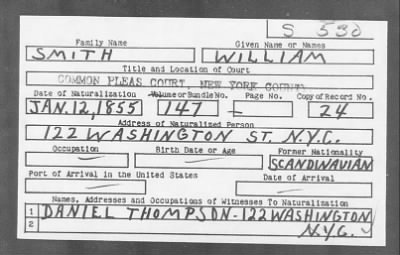 S 530
Family Name Given Name or Names
SMITH WILLIAM
Title and Location of Court
COMMON PLEAS COURT, NEW YORK COUNTY
Date of Naturalization Volume or Bundle No. Page No. Copy of Record No.
JAN. 12, 1855 147 — 24
Address of Naturalized Person
122 WASHINGTON ST. N.Y.C.
Occupation Birth Date or Age Former Nationality
— — SCANDINAVIAN
Port of Arrival in the United States Date of Arrival
— —
Names, Addresses and Occupations of Witnesses To Naturalization
1 DANIEL THOMPSON - 122 WASHINGTON
2 N.Y.C.